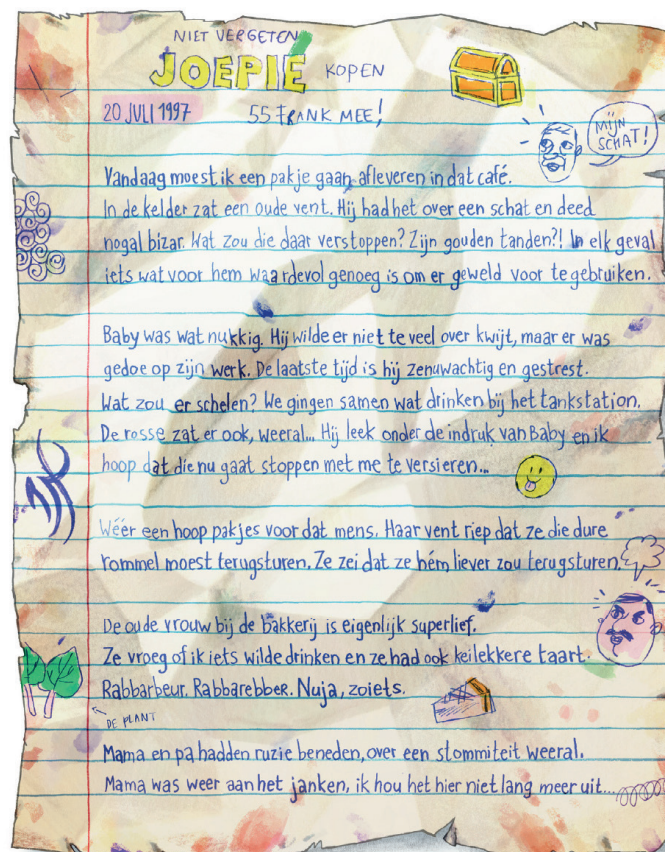 NIET VERGETEN
JOEPIE KOPEN
20 JULI 1997 55 FRANK MEE!
MIJN
SCHAT!
Vandaag moest ik een pakje gaan afleveren in dat café.
In de kelder zat een oude vent. Hij had het over een schat en deed
nogal bizar. Wat zou die daar verstoppen? Zijn gouden tanden?! In elk geval
iets wat voor hem waardevol genoeg is om er geweld voor te gebruiken.
Baby was wat nukkig. Hij wilde er niet te veel over kwijt, maar er was
gedoe op zijn werk. De laatste tijd is hij zenuwachtig en gestrest.
Wat zou er schelen? We gingen samen wat drinken bij het tankstation.
De rosse zat er ook, weeral... Hij leek onder de indruk van Baby en ik
hoop dat die nu gaat stoppen met me te versieren...
Wéér een hoop pakjes voor dat mens. Haar vent riep dat ze die dure
rommel moest terugsturen. Ze zei dat ze hém liever zou terugsturen.
De oude vrouw bij de bakkerij is eigenlijk superlief.
Ze vroeg of ik iets wilde drinken en ze had ook keilekkere taart.
Rabbarbeur. Rabbarebber. Nuja, zoiets.
DE PLANT
Mama en pa hadden ruzie beneden, over een stommiteit weeral.
Mama was weer aan het janken, ik hou het hier niet lang meer uit...